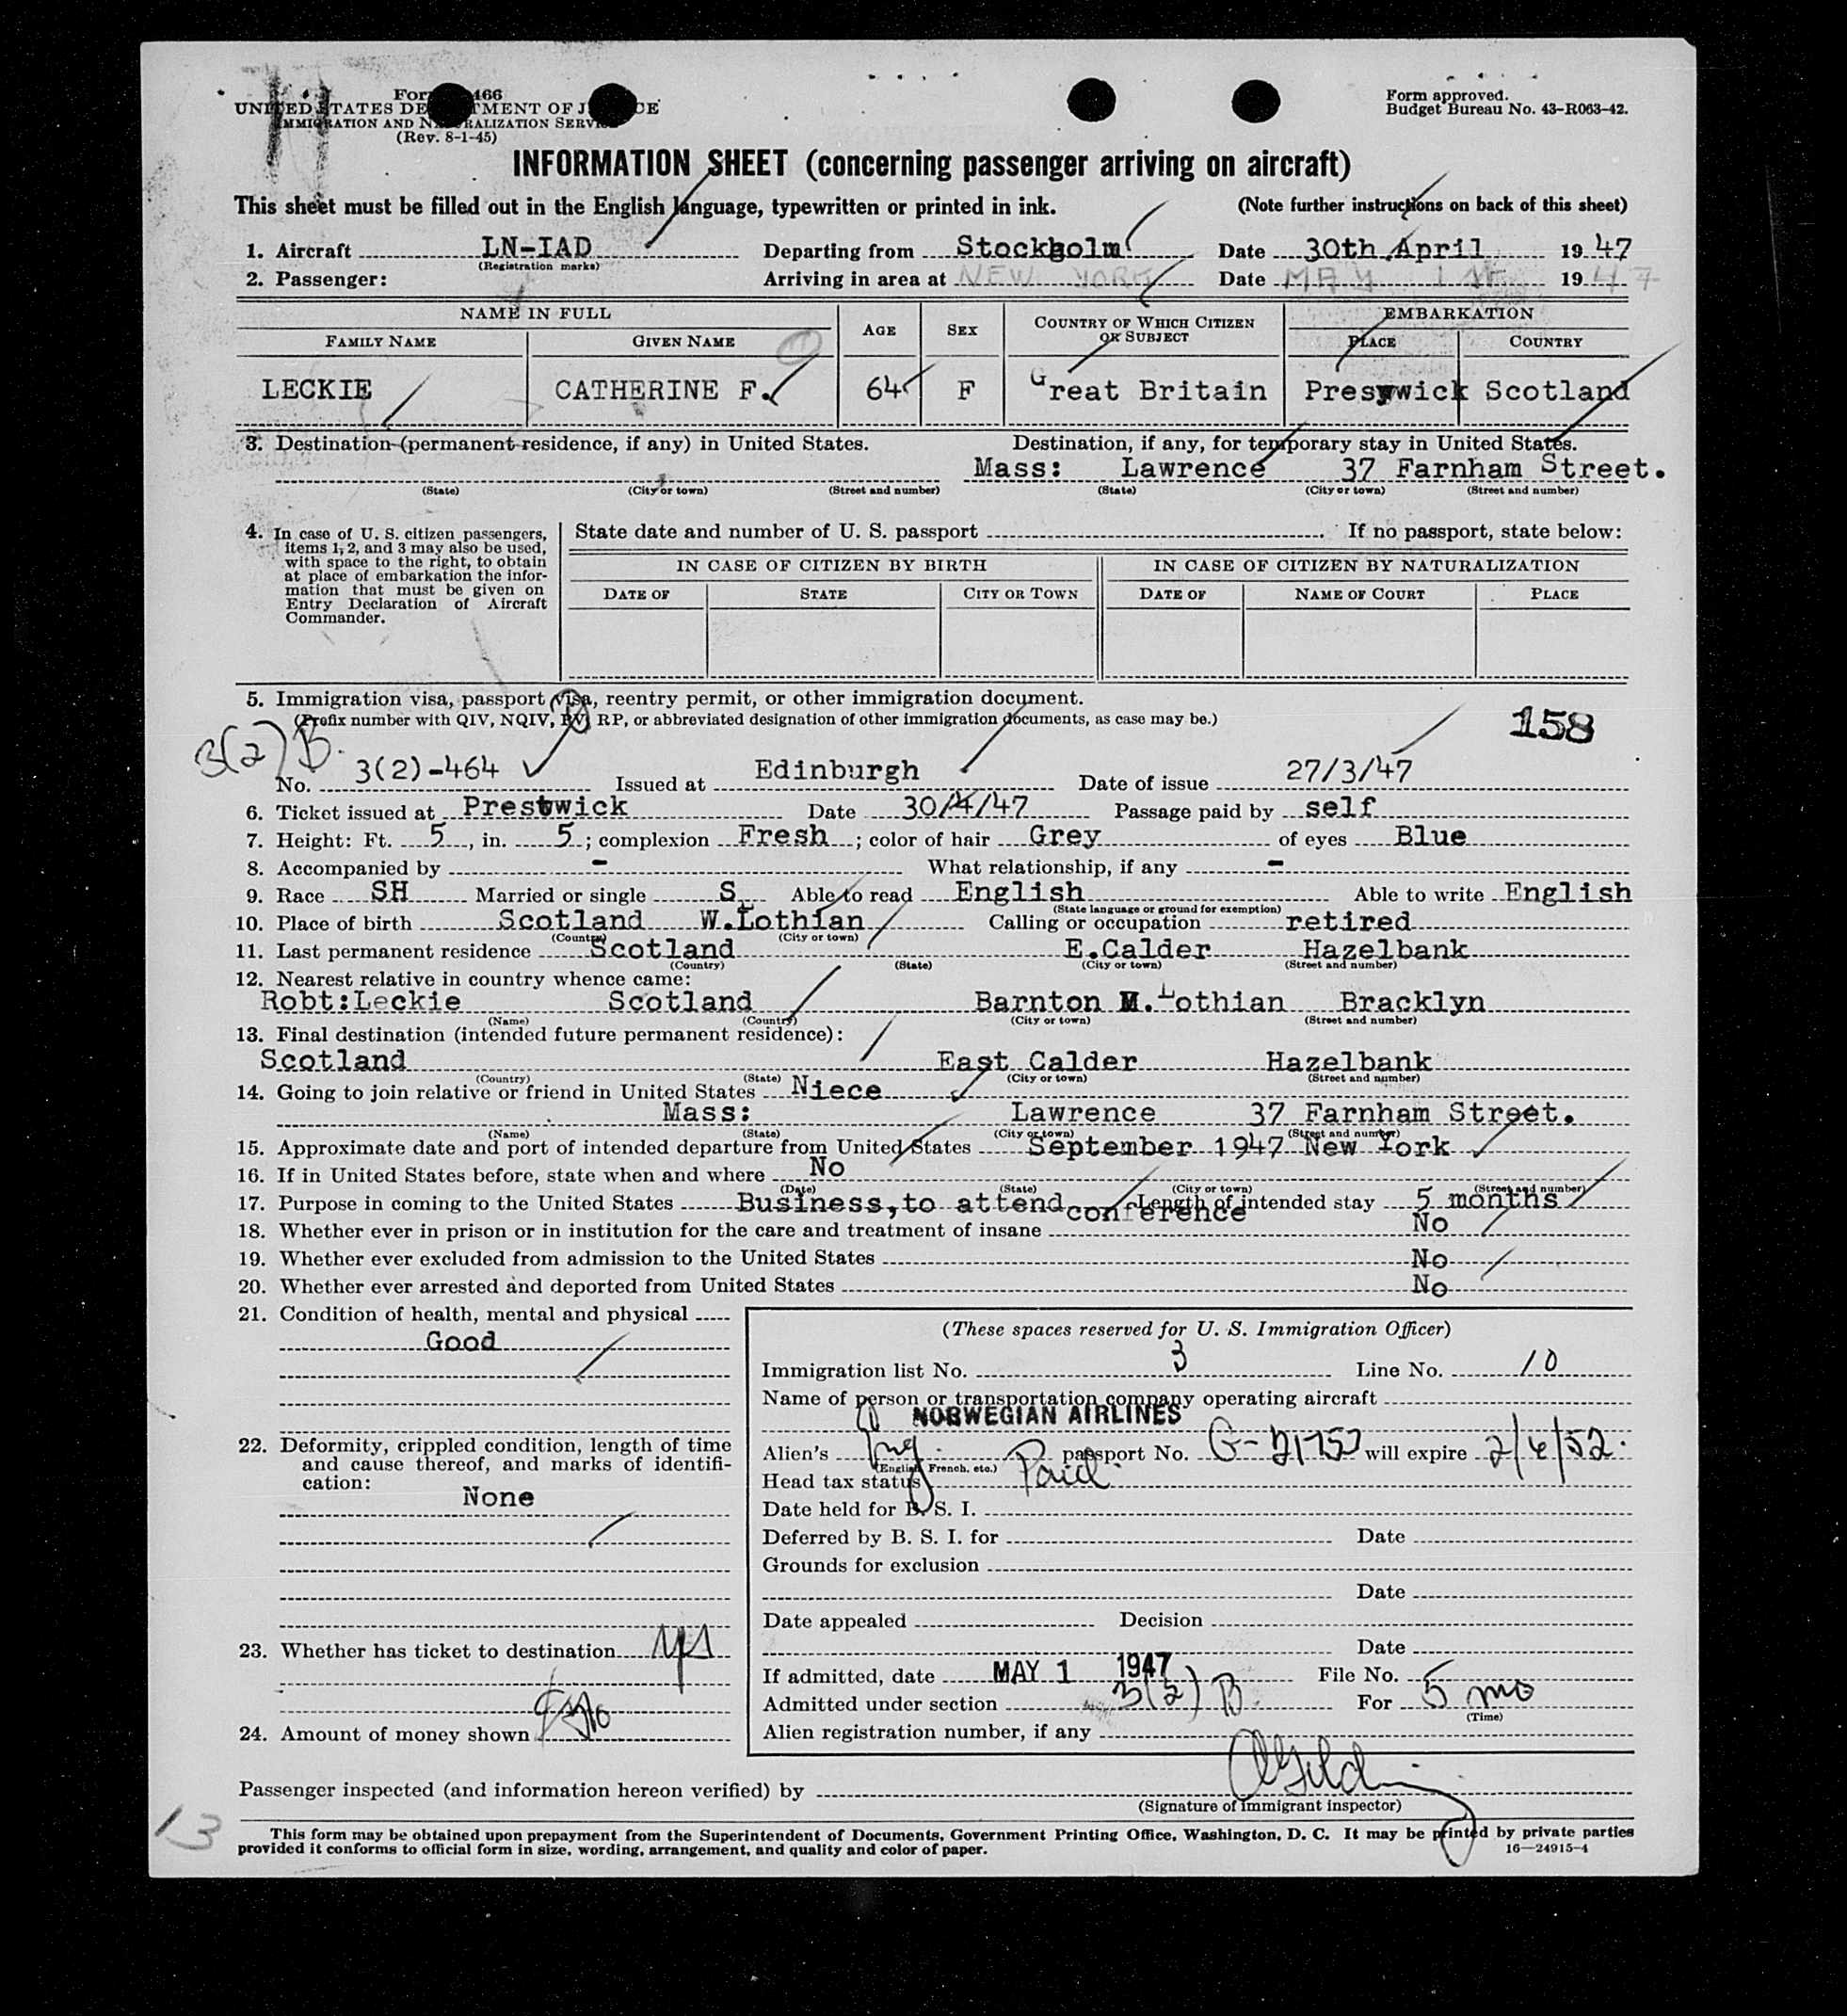 Form 466
UNITED STATES DEPARTMENT OF JUSTICE
IMMIGRATION AND NATURALIZATION SERVICE
(Rev. 8-1-45)
Form approved.
Budget Bureau No. 43-R063-42.
INFORMATION SHEET (concerning passenger arriving on aircraft)
This sheet must be filled out in the English language, typewritten or printed in ink. (Note further instructions on back of this sheet)
1. Aircraft LN-IAD Departing from Stockholm Date 30th April 1947
(Registration marks)
2. Passenger: Arriving in area at NEW YORK Date MAY 1st 1947
NAME IN FULL AGE SEX COUNTRY OF WHICH CITIZEN OR SUBJECT EMBARKATION
FAMILY NAME GIVEN NAME PLACE COUNTRY
LECKIE CATHERINE F. 64 F Great Britain Prestwick Scotland
3. Destination (permanent residence, if any) in United States. Destination, if any, for temporary stay in United States.
Mass: Lawrence 37 Farnham Street.
(State) (City or town) (Street and number) (State) (City or town) (Street and number)
4. In case of U. S. citizen passengers, items 1, 2, and 3 may also be used, with space to the right, to obtain at place of embarkation the information that must be given on Entry Declaration of Aircraft Commander.
State date and number of U. S. passport If no passport, state below:
IN CASE OF CITIZEN BY BIRTH IN CASE OF CITIZEN BY NATURALIZATION
DATE OF STATE CITY OR TOWN DATE OF NAME OF COURT PLACE
5. Immigration visa, passport visa, reentry permit, or other immigration document.
(Prefix number with QIV, NQIV, PV, RP, or abbreviated designation of other immigration documents, as case may be.)
158
3(2) B.
No. 3(2)-464 Issued at Edinburgh Date of issue 27/3/47
6. Ticket issued at Prestwick Date 30/4/47 Passage paid by self
7. Height: Ft. 5, in. 5; complexion Fresh; color of hair Grey of eyes Blue
8. Accompanied by - What relationship, if any -
9. Race SH Married or single S Able to read English Able to write English
(State language or ground for exemption)
10. Place of birth Scotland W.Lothian Calling or occupation retired
(Country) (City or town)
11. Last permanent residence Scotland E.Calder Hazelbank
(Country) (State) (City or town) (Street and number)
12. Nearest relative in country whence came:
Robt:Leckie Scotland Barnton M.Lothian Bracklyn
(Name) (Country) (City or town) (Street and number)
13. Final destination (intended future permanent residence):
Scotland East Calder Hazelbank
(Country) (State) (City or town) (Street and number)
14. Going to join relative or friend in United States Niece
Mass: Lawrence 37 Farnham Street.
(Name) (State) (City or town) (Street and number)
15. Approximate date and port of intended departure from United States September 1947 New York
16. If in United States before, state when and where No
(Date) (State) (City or town) (Street and number)
17. Purpose in coming to the United States Business, to attend conference Length of intended stay 5 months
18. Whether ever in prison or in institution for the care and treatment of insane No
19. Whether ever excluded from admission to the United States No
20. Whether ever arrested and deported from United States No
21. Condition of health, mental and physical
Good
22. Deformity, crippled condition, length of time and cause thereof, and marks of identification:
None
23. Whether has ticket to destination yes
24. Amount of money shown
(These spaces reserved for U. S. Immigration Officer)
Immigration list No. 3 Line No. 10
Name of person or transportation company operating aircraft
NORWEGIAN AIRLINES
Alien's Eng. passport No. G-21757 will expire 2/6/52.
(English, French, etc.)
Head tax status Paid
Date held for B. S. I.
Deferred by B. S. I. for Date
Grounds for exclusion
Date
Date appealed Decision
Date
If admitted, date MAY 1 1947 File No.
Admitted under section 3(2) B. For 5 mo
(Time)
Alien registration number, if any
Passenger inspected (and information hereon verified) by
(Signature of immigrant inspector)
13
This form may be obtained upon prepayment from the Superintendent of Documents, Government Printing Office, Washington, D. C. It may be printed by private parties
provided it conforms to official form in size, wording, arrangement, and quality and color of paper. 16—24915-4